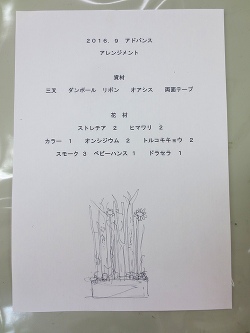 2016.9 アドバンス
アレンジメント
資材
三叉 ダンボール リボン オアシス 両面テープ
花 材
ストレチア 2 ヒマワリ 2
カラー 1 オンシジウム 2 トルコキキョウ 2
スモーク 3 ベビーハンス 1 ドラセラ 1